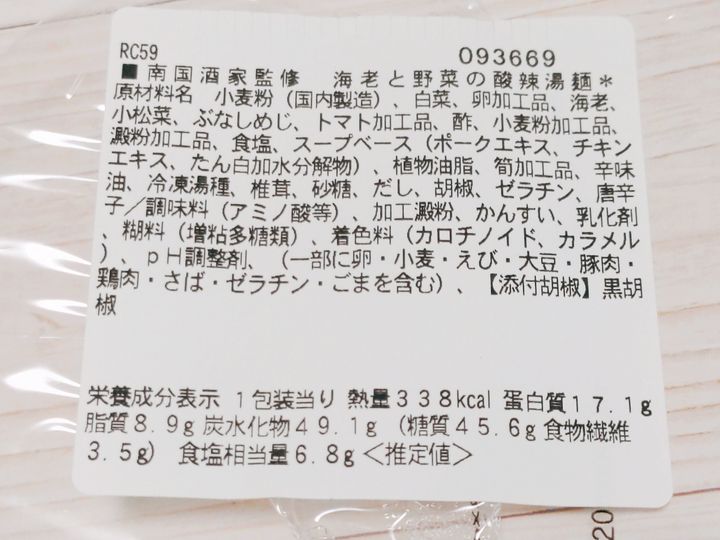 RC59 093669
■南国酒家監修 海老と野菜の酸辣湯麺＊
原材料名 小麦粉（国内製造）、白菜、卵加工品、海老、
小松菜、ぶなしめじ、トマト加工品、酢、小麦粉加工品、
澱粉加工品、食塩、スープベース（ポークエキス、チキン
エキス、たん白加水分解物）、植物油脂、筍加工品、辛味
油、冷凍湯種、椎茸、砂糖、だし、胡椒、ゼラチン、唐辛
子／調味料（アミノ酸等）、加工澱粉、かんすい、乳化剤
、糊料（増粘多糖類）、着色料（カロチノイド、カラメル
）、ｐＨ調整剤、（一部に卵・小麦・えび・大豆・豚肉・
鶏肉・さば・ゼラチン・ごまを含む）、【添付胡椒】黒胡
椒
栄養成分表示 1包装当り 熱量338kcal 蛋白質17.1g
脂質8.9g 炭水化物49.1g （糖質45.6g 食物繊維
3.5g） 食塩相当量6.8g＜推定値＞
20